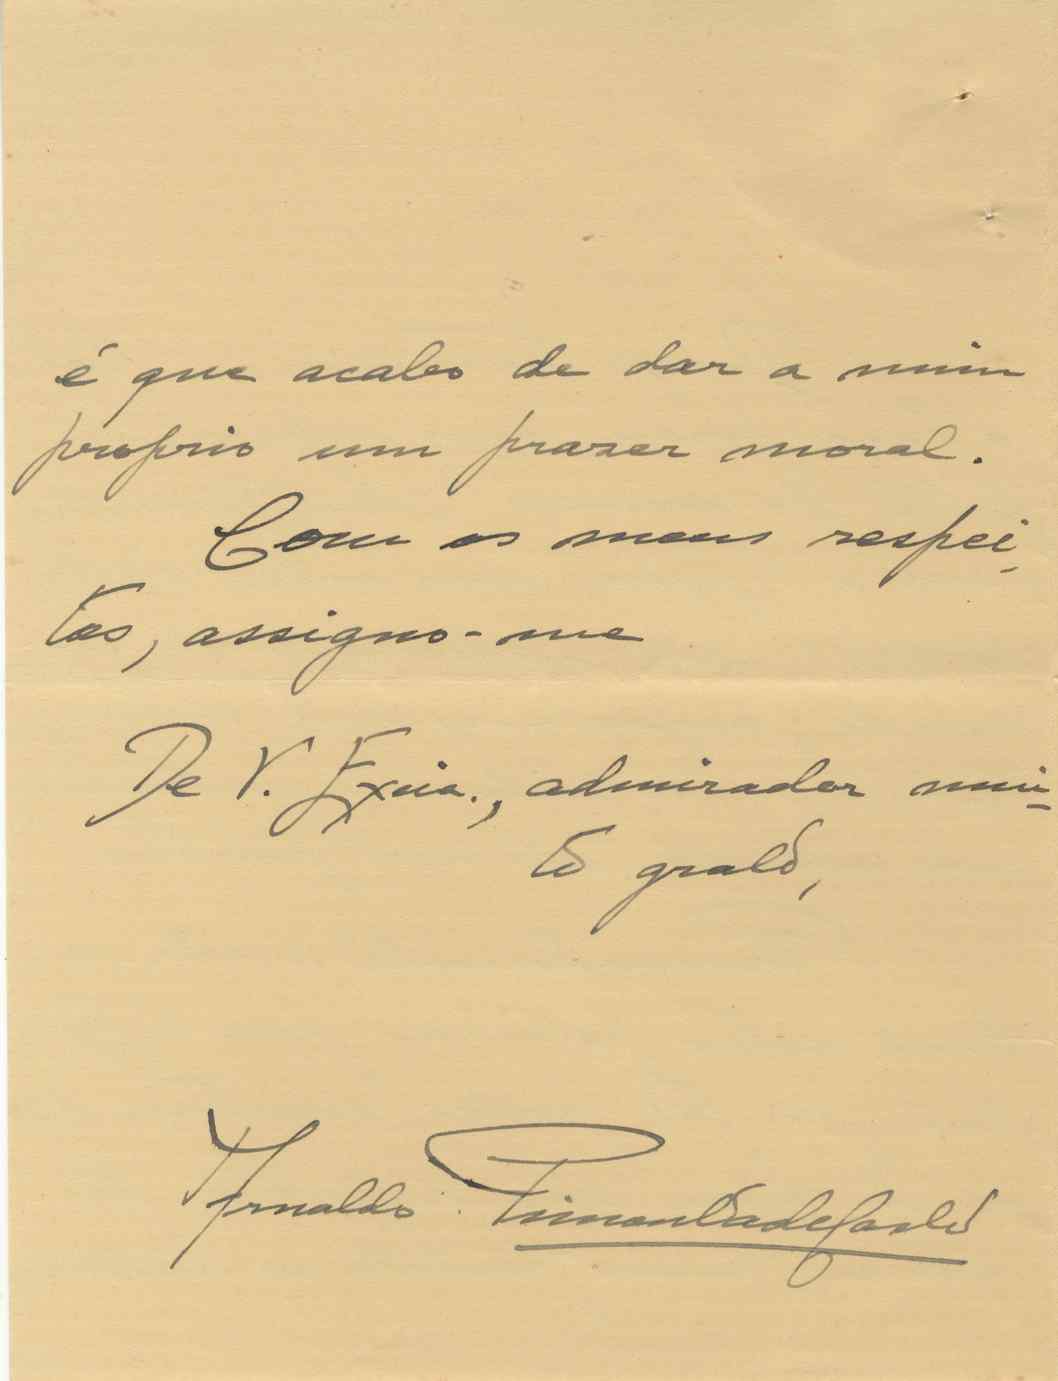 é que acabo de dar a mim
proprio um prazer moral.
Com os meus respei-
tos, assigno-me
De V. Excia., admirador mui-
to grato,
Arnaldo Pimenta de Castro